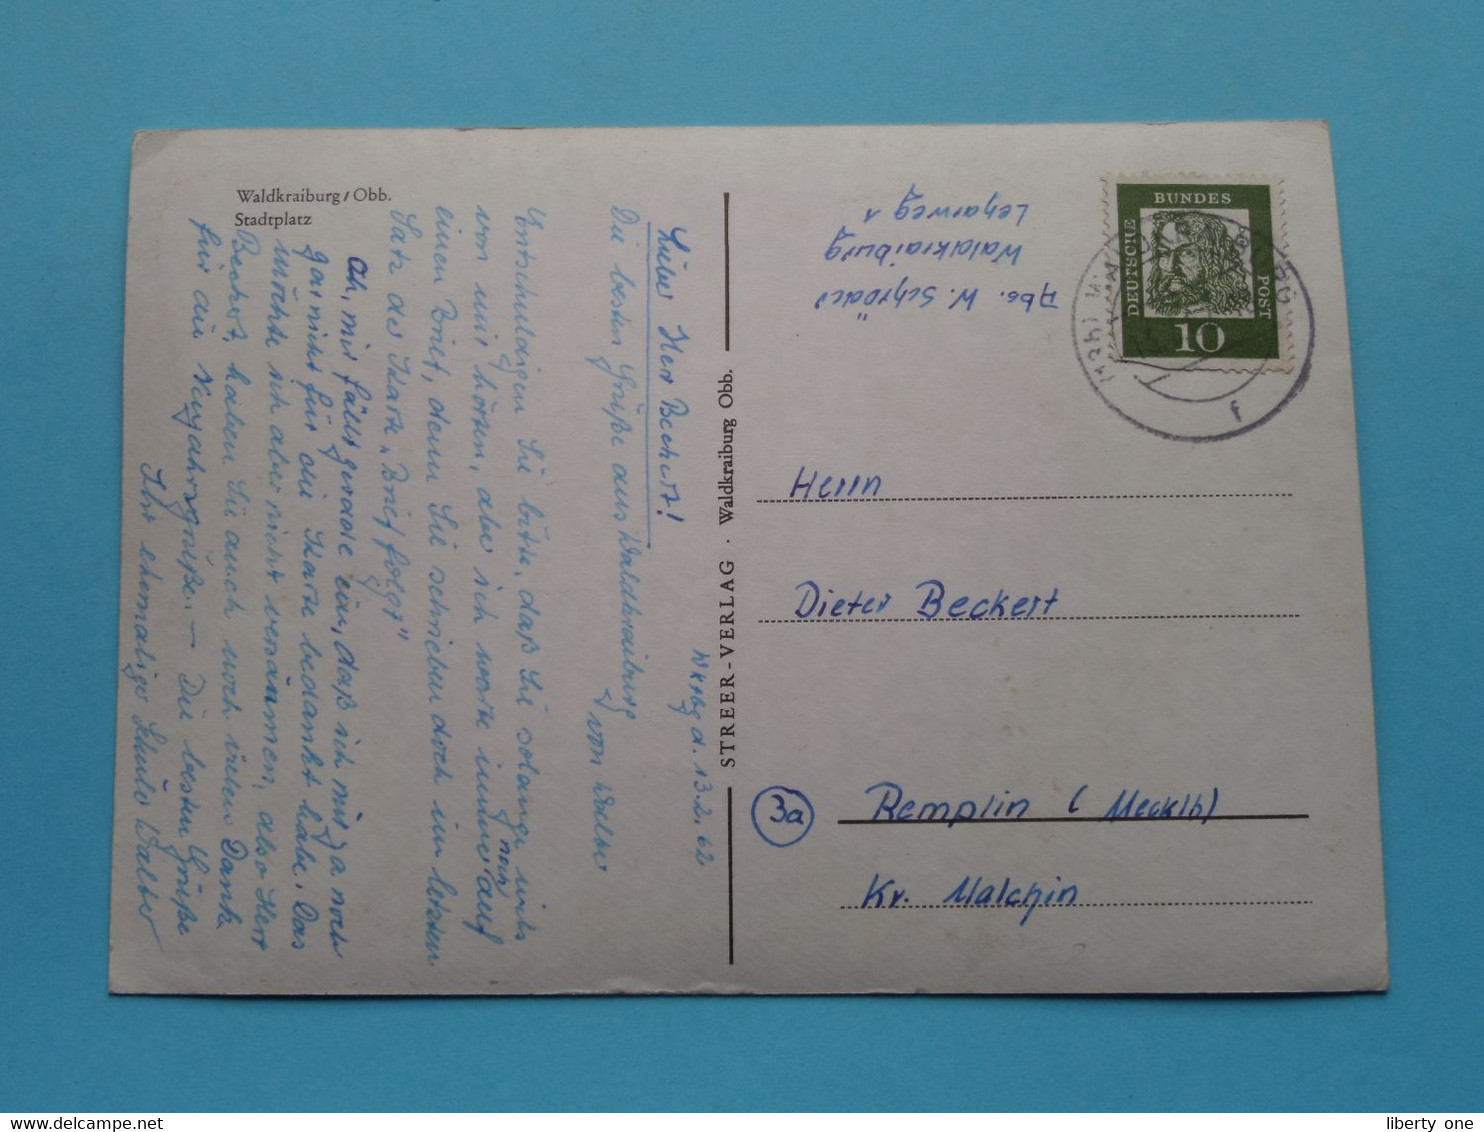 Waldkraiburg / Obb.
Stadtplatz
Wkrbg d. 13.2.62
Lieber Herr Beckert!
Die besten Grüße aus Waldkraiburg
von Walter
Entschuldigen Sie bitte, daß Sie solange nichts
von mir hörten, aber ich warte immer noch auf
einen Brief, denn Sie schrieben doch im letzten
Satz der Karte „Brief folgt"
Ah, mir fällt gerade ein, daß ich mich ja noch
gar nicht für die Karte bedankt habe. Das
möchte ich aber nicht versäumen, also Herr
Beckert, haben Sie auch noch vielen Dank
für die Neujahrsgrüße. – Die besten Grüße
Ihr ehemaliger Schüler Walter
STREER-VERLAG · Waldkraiburg Obb.
Abs. W. Schröder
Waldkraiburg
Leharweg 1
DEUTSCHE
BUNDES
POST
10
f
Herrn
Dieter Beckert
3a
Remplin (Mecklb)
Kr. Malchin
liberty one